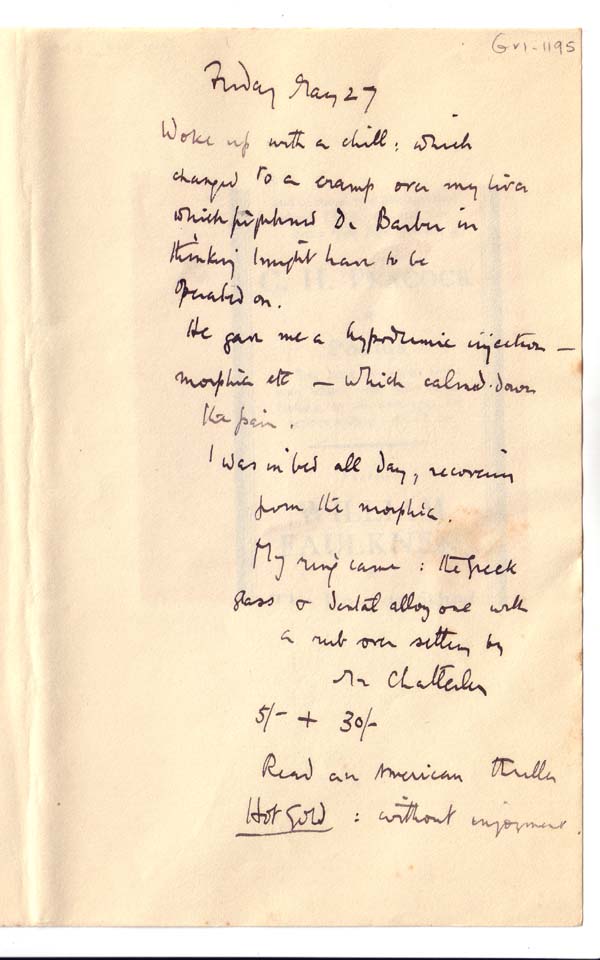 GVI-1195
Friday May 27
Woke up with a chill: which
changed to a cramp over my liver
which frightened Dr Barber in
thinking I might have to be
operated on.
He gave me a hypodermic injection –
morphia etc – which calmed down
the pain.
I was in bed all day, recovering
from the morphia.
My ring came: the Greek
glass & dental alloy one with
a rub over setting by
Mr Chatterley
5/- + 30/-
Read an American thriller
Hot Gold : without enjoyment.